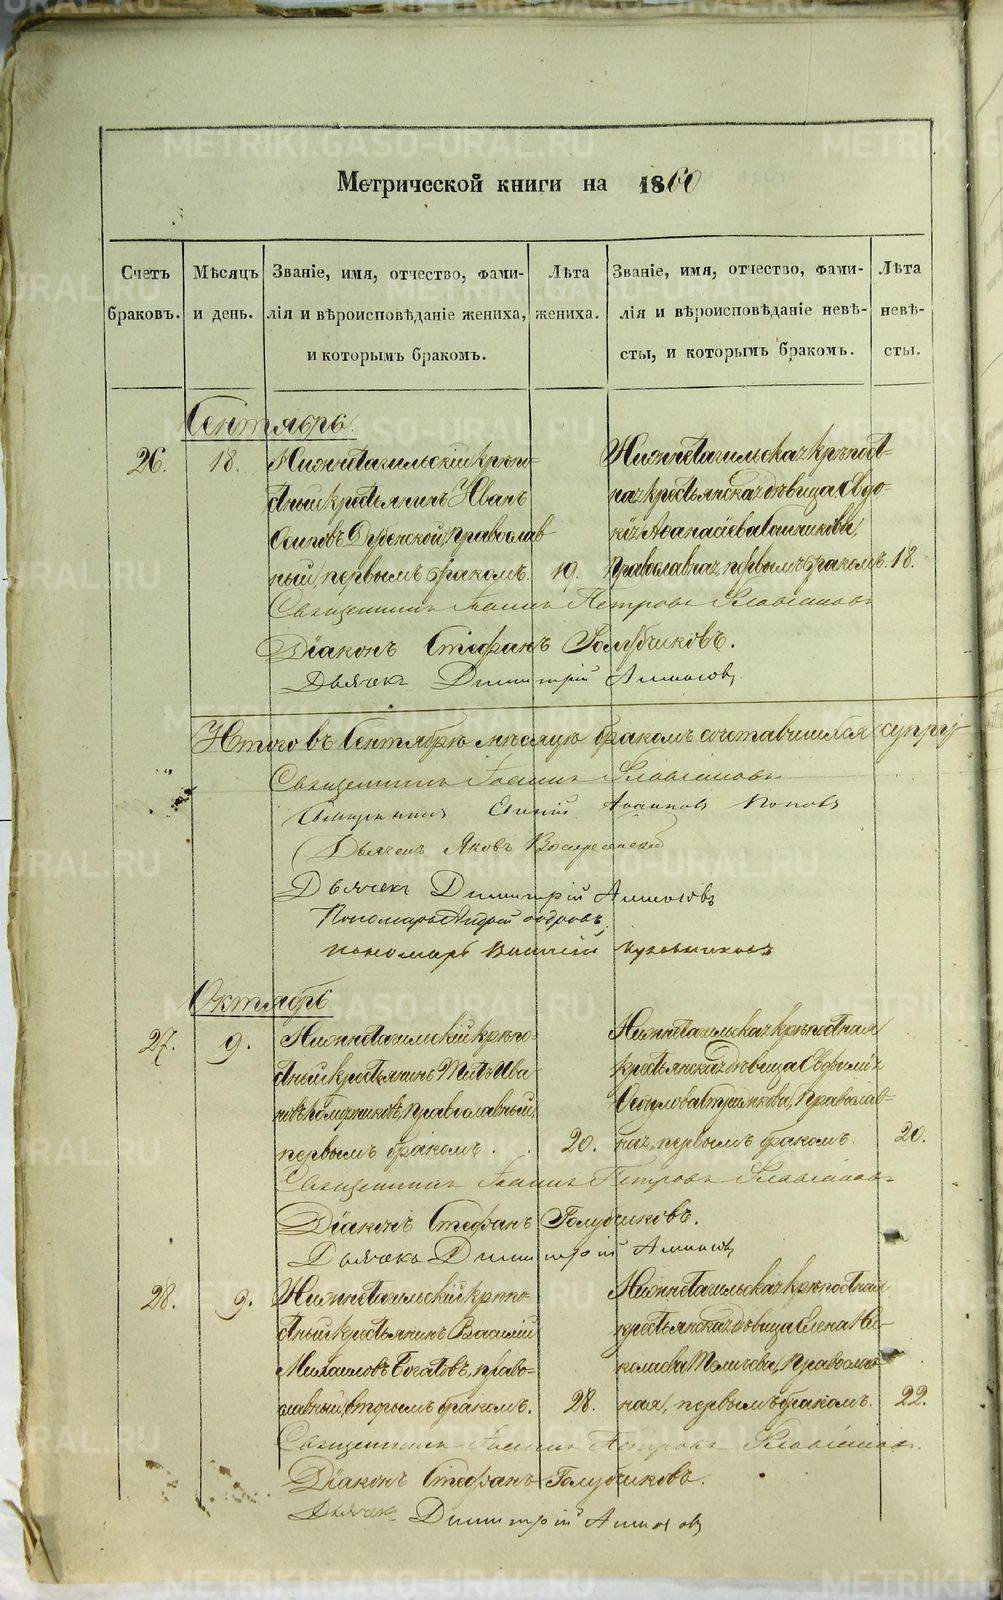 Метрической книги на 1860
Счетъ браковъ.
Мѣсяцъ и день.
Званіе, имя, отчество, фами-
лія и вѣроисповѣданіе жениха,
и которымъ бракомъ.
Лѣта жениха.
Званіе, имя, отчество, фами-
лія и вѣроисповѣданіе невѣ-
сты, и которымъ бракомъ.
Лѣта невѣ-
сты.
Сентябрь.
26. 18.
Нижнетагильскій крѣпо-
стный крестьянинъ Иванъ
Осиповъ православ
ный, первымъ бракомъ. 19.
Нижнетагильская крѣпост-
ная крестьянская дѣвица Евдо-
кія Аѳанасіева
православная, первымъ бракомъ. 18.
Священникъ Іоаннъ Петровъ Славнинъ
Діаконъ Стефанъ Голубчиковъ.
Дьячекъ Димитрій
Итого въ Сентябрѣ мѣсяцѣ бракомъ сочетавшихся супру
Священникъ Іоаннъ
Священникъ Іоанновъ Поповъ
Дьячекъ Яковъ Воскресенскій
Дьячекъ Димитрій
Пономарь Андрей
пономарь Василій
Октябрь
27. 9.
Нижнетагильскій крѣпо-
стный крестьянинъ Титъ Ива-
новъ православный,
первымъ бракомъ. 20.
Нижнетагильская крѣпостная
крестьянская дѣвица
православ-
ная, первымъ бракомъ. 20.
Священникъ Іоаннъ Петровъ
Діаконъ Стефанъ Голубчиковъ.
Дьячекъ Димитрій
28. 9.
Нижнетагильскій крѣпо-
стный крестьянинъ Василій
Михаиловъ Богатовъ, право-
славный, вторымъ бракомъ. 28.
Нижнетагильская крѣпостная
крестьянская дѣвица Елена Ни-
колаева православ-
ная, первымъ бракомъ. 22.
Священникъ Іоаннъ Петровъ
Діаконъ Стефанъ Голубчиковъ.
Дьячекъ Димитрій
METRIKI.GASO-URAL.RU